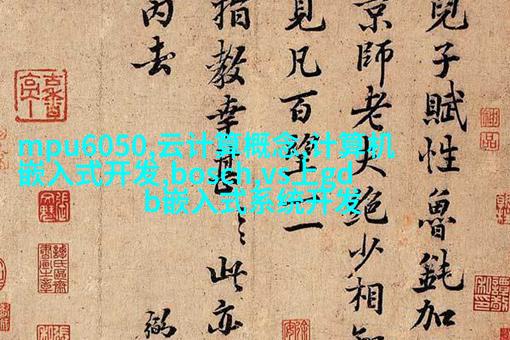 mpu6050,云计算概念,计算机
嵌入式开发,bosch,vs上gd
b嵌入式系统开发
兒子賦性魯鈍加
京師老夫絕少相
見凡百一一
指教幸甚〻此亦